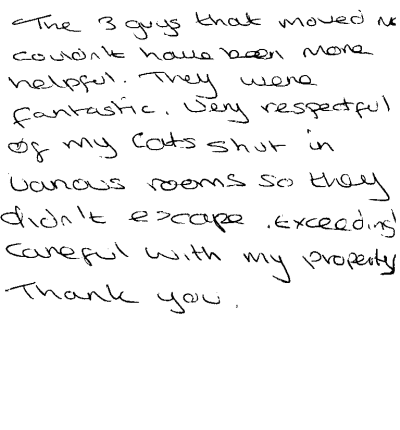 The 3 guys that moved
couldn't have been more
helpful. They were
fantastic. Very respectful
of my cats shut in
various rooms so they
didn't escape. Exceeding
careful with my property
Thank you.